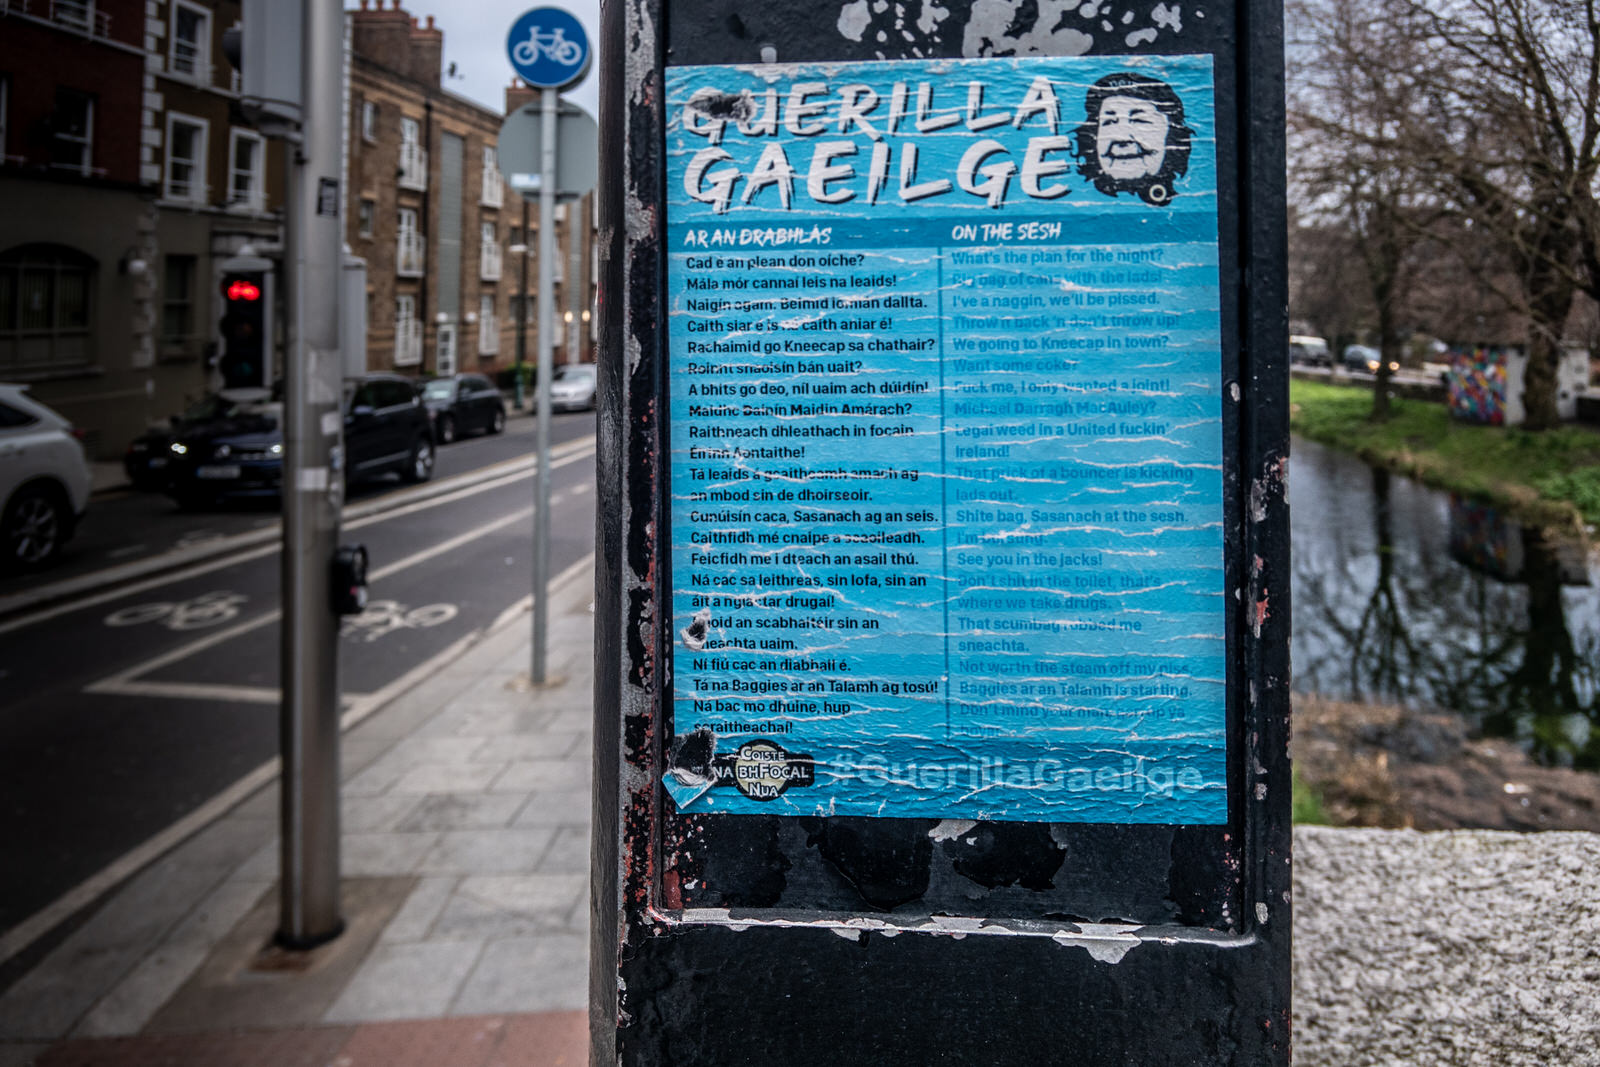 GUERILLA
GAEILGE
AR AN DRABHLÁS
Cad é an plean don oíche?
Mála mór cannaí leis na leaids!
Naigín agam. Beimid iomlán dallta.
Caith siar é is ná caith aniar é!
Rachaimid go Kneecap sa chathair?
Roinnt snaoisín bán uait?
A bhits go deo, níl uaim ach dúidín!
Maidhc Dainín Maidin Amárach?
Raithneach dhleathach in focain
Éirinn Aontaithe!
Tá leaids á gcaitheamh amach ag
an mbod sin de dhoirseoir.
Cunúisín caca, Sasanach ag an seis.
Caithfidh mé cnaipe a scaoileadh.
Feicfidh mé i dteach an asail thú.
Ná cac sa leithreas, sin lofa, sin an
áit a nglactar drugaí!
Ghoid an scabhaitéir sin an
sneachta uaim.
Ní fiú cac an diabhail é.
Tá na Baggies ar an Talamh ag tosú!
Ná bac mo dhuine, hup
scraitheachaí!
ON THE SESH
What's the plan for the night?
Big bag of cans with the lads!
I've a naggin, we'll be pissed.
Throw it back 'n don't throw up!
We going to Kneecap in town?
Want some coke?
Fuck me, I only wanted a joint!
Michael Darragh MacAuley?
Legal weed in a United fuckin'
Ireland!
That prick of a bouncer is kicking
lads out.
Shite bag, Sasanach at the sesh.
I'm
See you in the jacks!
Don't shit in the toilet, that's
where we take drugs.
That scumbag robbed me
sneachta.
Not worth the steam off my piss.
Baggies ar an Talamh is starting.
Don't mind your man, ya
COISTE
NA BHFOCAL
NUA
#GuerillaGaeilge